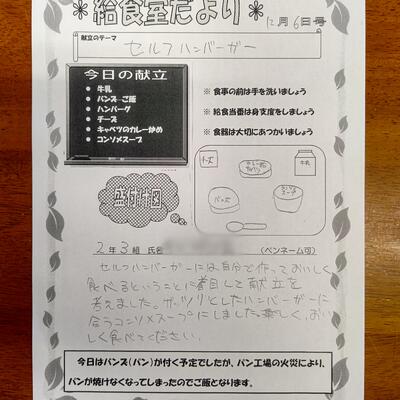 ＊給食室だより＊ 12月6日号
献立のテーマ
セルフハンバーガー
今日の献立
● 牛乳
● バンズ ご飯
● ハンバーグ
● チーズ
● キャベツのカレー炒め
● コンソメスープ
※ 食事の前は手を洗いましょう
※ 給食当番は身支度をしましょう
※ 食器は大切にあつかいましょう
盛り付け図
チーズ
牛乳
バンズ
2年3組 氏名 (ペンネーム可)
セルフハンバーガーには自分で作っておいしく
食べるということに着目して献立を
考えました。ガッツリとしたハンバーガーに
合うコンソメスープにしました。楽しく、おい
しく食べてください。
今日はバンズ(パン)が付く予定でしたが、パン工場の火災により、
パンが焼けなくなってしまったのでご飯となります。